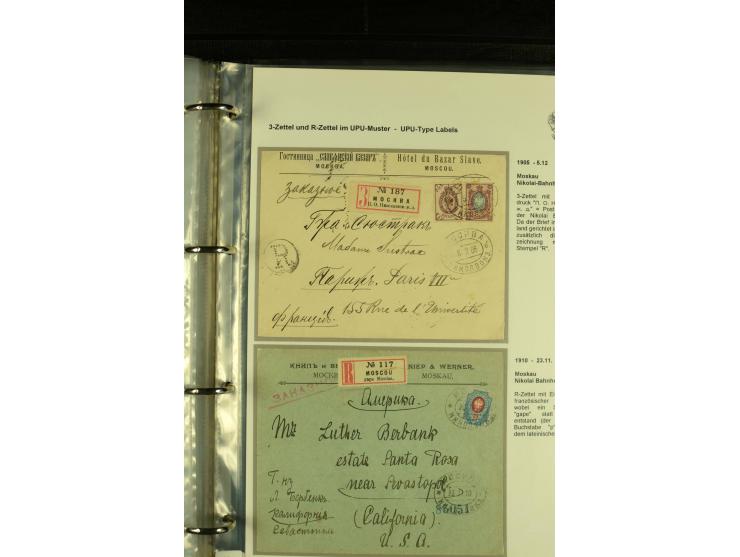 3-Zettel und R-Zettel im UPU-Muster - UPU-Type Labels
Гостинница „Славянскій Базаръ“ Hôtel du Bazar Slave.
МОСКВА. MOSCOU.
Заказное
З № 187
МОСКВА
П. О. Николаев. ж. д.
Madame
Парижъ. Paris VII
Франція. 155 Rue de l'Université
R
МОСКВА
1905 - 5.12
Moskau
Nikolai-Bahnhof
3-Zettel mit
druck "П. О. Н
ж. д." = Post
der Nikolai E
Da der Brief in
land gerichtet i
zusätzlich di
zeichnung
Stempel "R".
КНИПЪ и ВЕ NIEP & WERNER.
МОСК MOSKAU.
R № 117
MOSCOU
ЗАКАЗ
Америка.
Mr Luther Berbank
estate Santa Rosa
near Sevastopol
(California)
U. S. A.
Г-нъ
Л. Бербенкъ
Калифорнія
Севастополь
86051
1910 - 23.11.
Moskau
Nikolai Bahnho
R-Zettel mit Ei
französischer
wobei ein
"gape" statt
entstand (der
Buchstabe "р"
dem lateinische